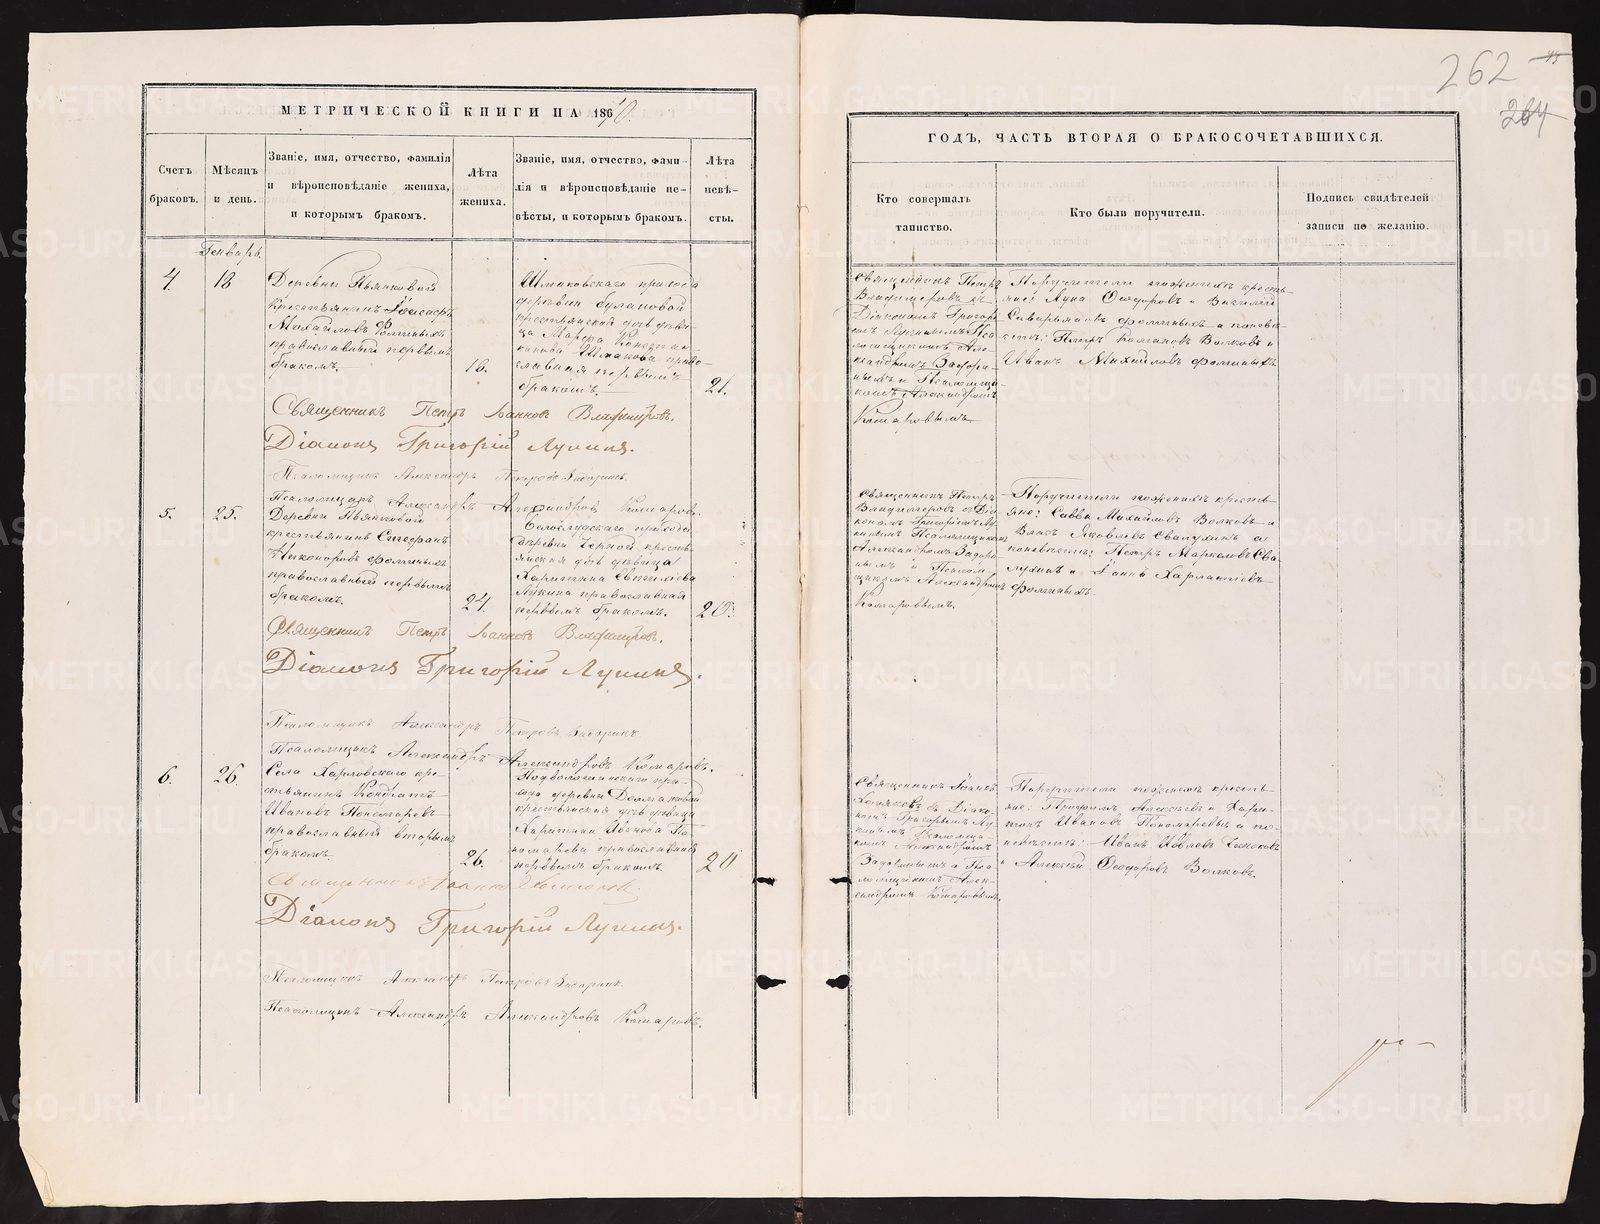 262
264
МЕТРИЧЕСКОЙ КНИГИ НА 1870
Счетъ браковъ.
Мѣсяцъ и день.
Званіе, имя, отчество, фамилія
и вѣроисповѣданіе жениха,
и которымъ бракомъ.
Лѣта жениха.
Званіе, имя, отчество, фами-
лія и вѣроисповѣданіе не-
вѣсты, и которымъ бракомъ.
Лѣта невѣ-
сты.
Генварь.
4.
18
Деревни Пьянковой
крестьянинъ
Михайловъ Фоминыхъ
православный первымъ
бракомъ.
18.
Шмаковскаго прихода
деревни Булановой
крестьянская дочь дѣви-
ца Марѳа
Шмакова право-
славная первымъ
бракомъ.
21.
Священникъ Петръ Іоанновъ Владиміровъ.
Діаконъ Григорій Лукинъ.
Псаломщикъ Александръ Петровъ Задоринъ.
Псаломщикъ Александръ Александровъ Комаровъ.
5.
25.
Деревни Пьянковой
крестьянинъ Стефанъ
Никоноровъ Фоминыхъ
православный первымъ
бракомъ.
24.
Белослудскаго прихода
деревни Черной кресть-
янская дочь дѣвица
Харитина Евтиміева
Лукина православная
первымъ бракомъ.
20.
Священникъ Петръ Іоанновъ Владиміровъ.
Діаконъ Григорій Лукинъ.
Псаломщикъ Александръ Петровъ Задоринъ
Псаломщикъ Александръ Александровъ Комаровъ.
6.
26.
Села Харловскаго кре-
стьянинъ Кондратъ
Ивановъ Пономаревъ
православный вторымъ
бракомъ.
26.
Подволошинскаго при-
хода деревни Долматовой
крестьянская дочь дѣвица
Харитина Иванова По-
номарева православная
первымъ бракомъ.
20
Священникъ Іоаннъ Хомяковъ.
Діаконъ Григорій Лукинъ.
Псаломщикъ Александръ Петровъ Задоринъ.
Псаломщикъ Александръ Александровъ Комаровъ.
ГОДЪ, ЧАСТЬ ВТОРАЯ О БРАКОСОЧЕТАВШИХСЯ.
Кто совершалъ
таинство.
Кто были поручители.
Подпись свидѣтелей
записи по желанію.
Священникъ Петръ
Владиміровъ съ
Діакономъ Григорі-
емъ Лукинымъ Пса-
ломщикомъ Але-
ксандромъ Задори-
нымъ и Псаломщи-
комъ Александромъ
Комаровымъ
Поручители по женихѣ кресть-
яне: Лука Ѳеодоровъ и Василій
Северьяновъ Фоминыхъ а по невѣ-
стѣ: Петръ Волковъ и
Иванъ Михайловъ Фоминыхъ
Священникъ Петръ
Владиміровъ съ Діа-
кономъ Григоріемъ Лу-
кинымъ Псаломщикомъ
Александромъ Задори-
нымъ и Псалом-
щикомъ Александромъ
Комаровымъ.
Поручители по женихѣ кресть-
яне: Савва Михайловъ Волковъ и
Власъ Яковлевъ Свалухинъ а
по невѣстѣ: Петръ Маркеловъ Сва-
лухинъ и Іоаннъ Харлампіевъ
Фоминыхъ.
Священникъ Іоаннъ
Хомяковъ съ Діако-
номъ Григоріемъ Лу-
кинымъ Псаломщи-
комъ Александромъ
Задоринымъ и Пса-
ломщикомъ Алек-
сандромъ Комаровымъ.
Поручители по женихѣ кресть-
яне: Трофимъ Алексѣевъ и Хари-
тонъ Ивановъ Пономаревы а по
невѣстѣ: Иванъ Яковлевъ
и Алексѣй Ѳеодоровъ Волковъ.
METRIKI.GASO-URAL.RU